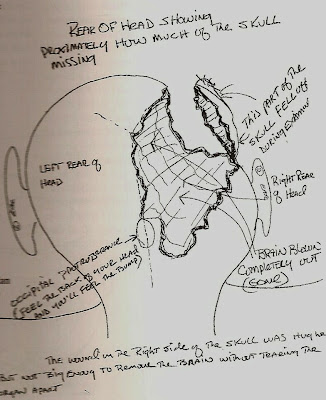 REAR OF HEAD SHOWING
PROXIMATELY HOW MUCH OF THE SKULL
MISSING
THIS PART OF THE
SKULL FELL OFF
DURING EXAMIN
LEFT REAR of
HEAD
RIGHT REAR
of HEAD
OCCIPITAL PROTRUBERANCE
(FEEL THE BACK OF YOUR HEAD
AND YOU'LL FEEL THE BUMP)
BRAIN BLOWN
COMPLETELY OUT
(GONE)
THE WOUND IN THE RIGHT SIDE of THE SKULL WAS HUGE
BUT NOT BIG ENOUG TO REMOVE THE BRAIN WITHOUT TEARING THE
ORGAN APART